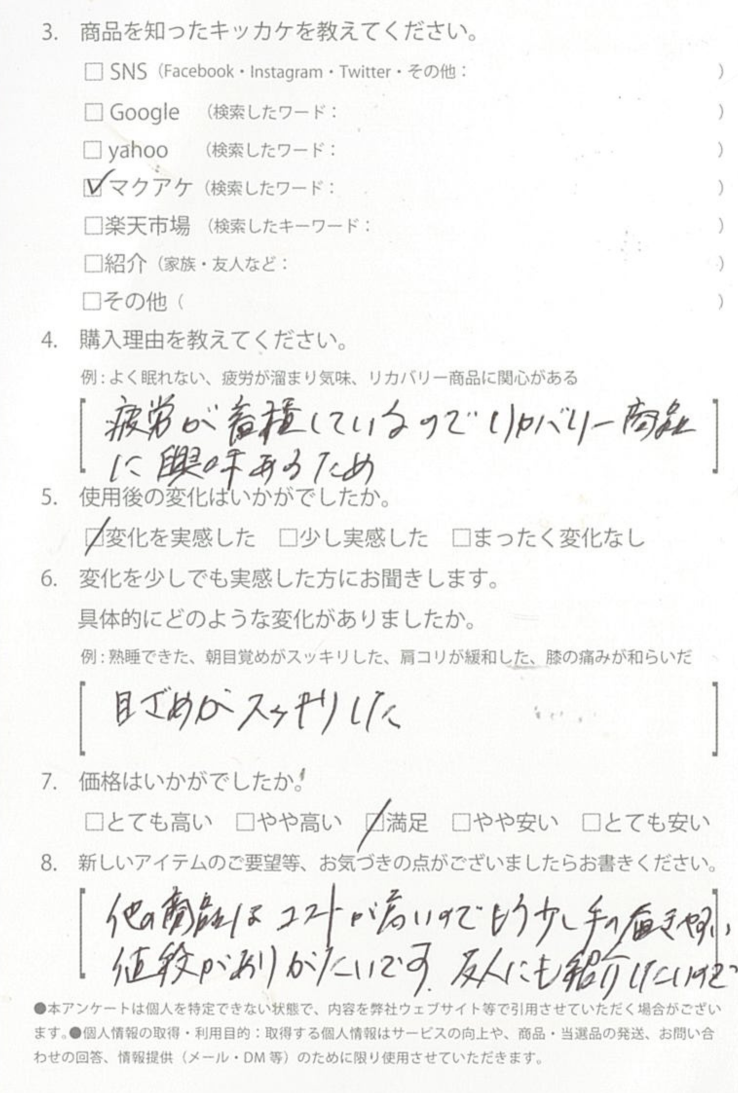 3. 商品を知ったキッカケを教えてください。
□ SNS（Facebook・Instagram・Twitter・その他： ）
□ Google （検索したワード： ）
□ yahoo （検索したワード： ）
☑ マクアケ（検索したワード： ）
□楽天市場 （検索したキーワード： ）
□紹介（家族・友人など： ）
□その他（ ）
4. 購入理由を教えてください。
例：よく眠れない、疲労が溜まり気味、リカバリー商品に関心がある
疲労が蓄積しているのでリカバリー商品
に興味あるため
5. 使用後の変化はいかがでしたか。
☑変化を実感した □少し実感した □まったく変化なし
6. 変化を少しでも実感した方にお聞きします。
具体的にどのような変化がありましたか。
例：熟睡できた、朝目覚めがスッキリした、肩コリが緩和した、膝の痛みが和らいだ
目ざめがスッキリした
7. 価格はいかがでしたか。
□とても高い □やや高い ☑満足 □やや安い □とても安い
8. 新しいアイテムのご要望等、お気づきの点がございましたらお書きください。
他の商品はコストが高いのでもう少し手の届きやすい
値段がありがたいです。友人にも紹介したいので
●本アンケートは個人を特定できない状態で、内容を弊社ウェブサイト等で引用させていただく場合がござい
ます。●個人情報の取得・利用目的：取得する個人情報はサービスの向上や、商品・当選品の発送、お問い合
わせの回答、情報提供（メール・DM 等）のために限り使用させていただきます。